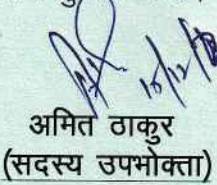 15/12/
अमित ठाकुर
(सदस्य उपभोक्ता)